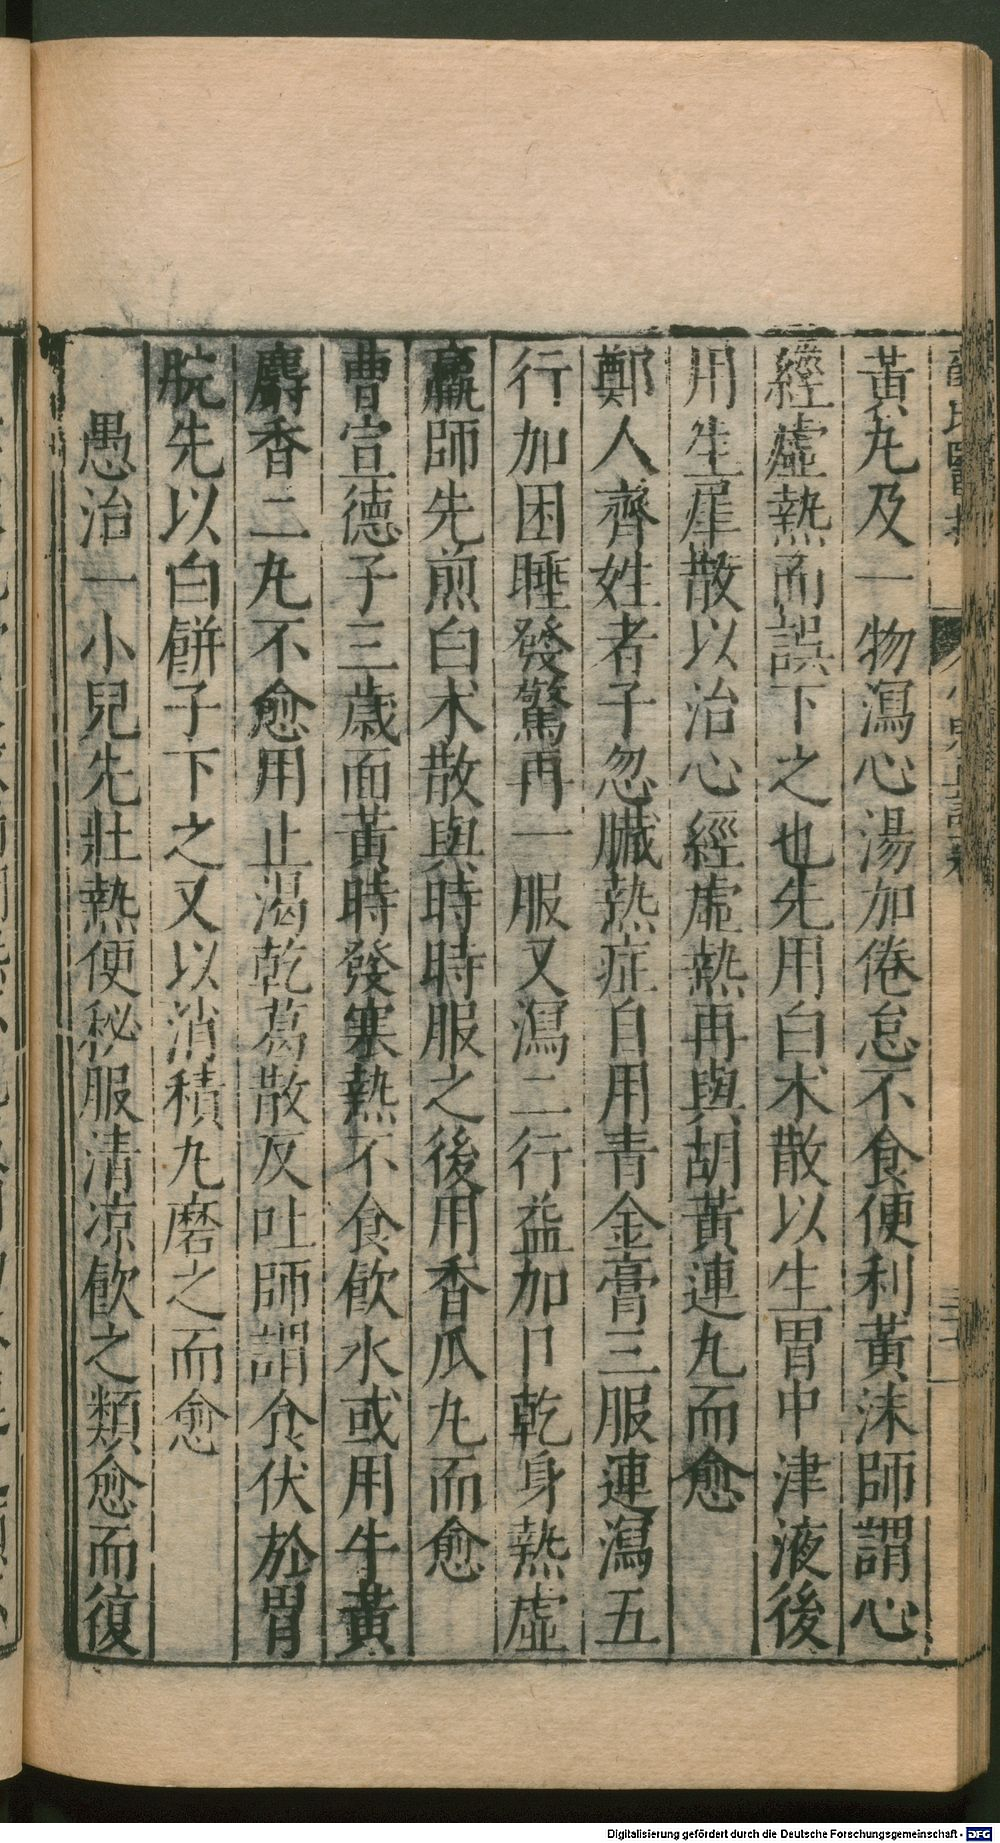 黃丸及一物瀉心湯加倦怠不食便利黃沫師謂心
經虛熱而誤下之也先用白朮散以生胃中津液後
用生犀散以治心經虛熱再與胡黃連丸而愈
鄭人齊姓者子忽臟熱症自用青金膏三服連瀉五
行加困睡發驚再一服又瀉二行益加口乾身熱虛
羸師先煎白朮散與時時服之後用香瓜丸而愈
曹宣德子三歲面黃時發寒熱不食飲水或用牛黃
麝香二丸不愈用止渴乾葛散反吐師謂食伏於胃
脘先以白餅子下之又以消積丸磨之而愈
愚治一小兒先壯熱便秘服清涼飲之類愈而復
Digitalisierung gefördert durch die Deutsche Forschungsgemeinschaft - DFG